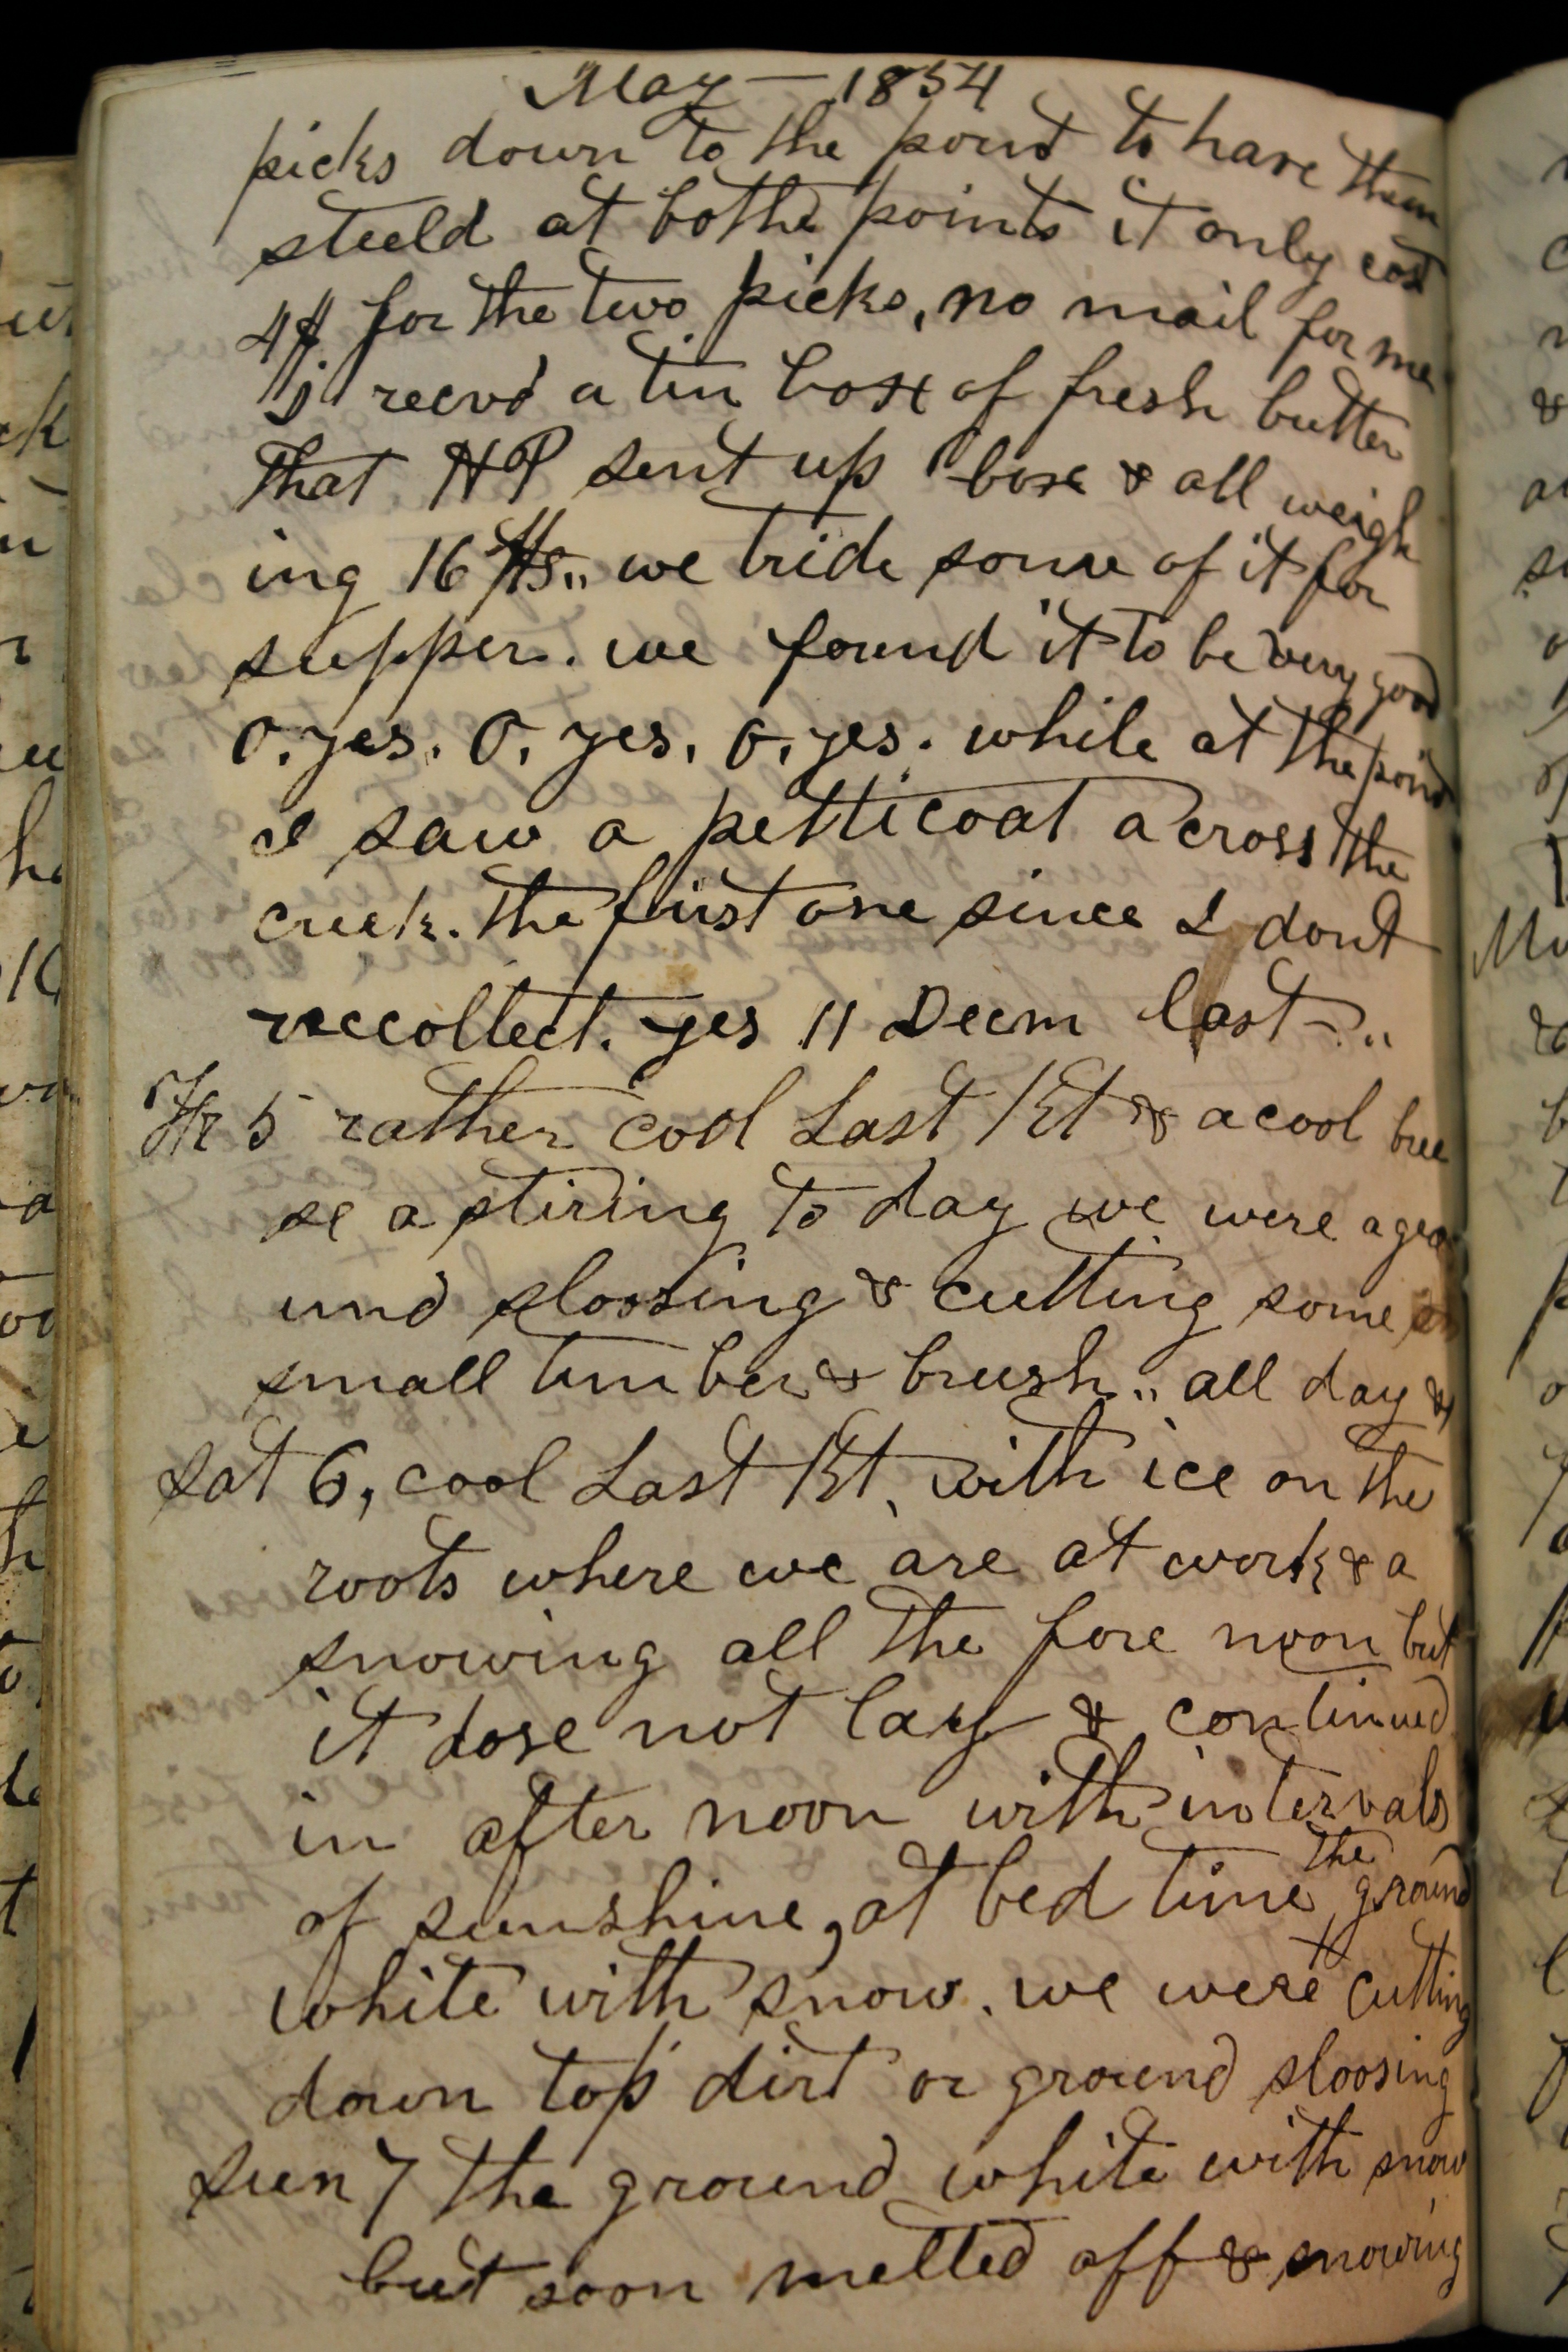 May — 1854
picks down to the point to have them
steeld at bothe points it only cost
4$ for the two picks, no mail for me
I reevd a tin box of fresh butter
that HP sent up box & all weigh
ing 16 lbs.. we tride some of it for
supper. we found it to be very good
O. yes. O, yes, O, yes. while at the point
I saw a petticoat across the
creek. the first one since I dont
reccollect. yes 11 Decm last -..
Fr 5 rather cool Last Nt & a cool bree
se a stiring to day we were a gro
und sloosing & cutting some
small timber & brush.. all day &
Sat 6, cool Last Nt, with ice on the
roots where we are at work & a
snowing all the fore noon but
it dose not lay & continued
in after noon with intervals
of sunshine, at bed time the ground
white with snow. we were cutting
down top dirt or ground sloosing
Sun 7 the ground white with snow
but soon melted off & snowing